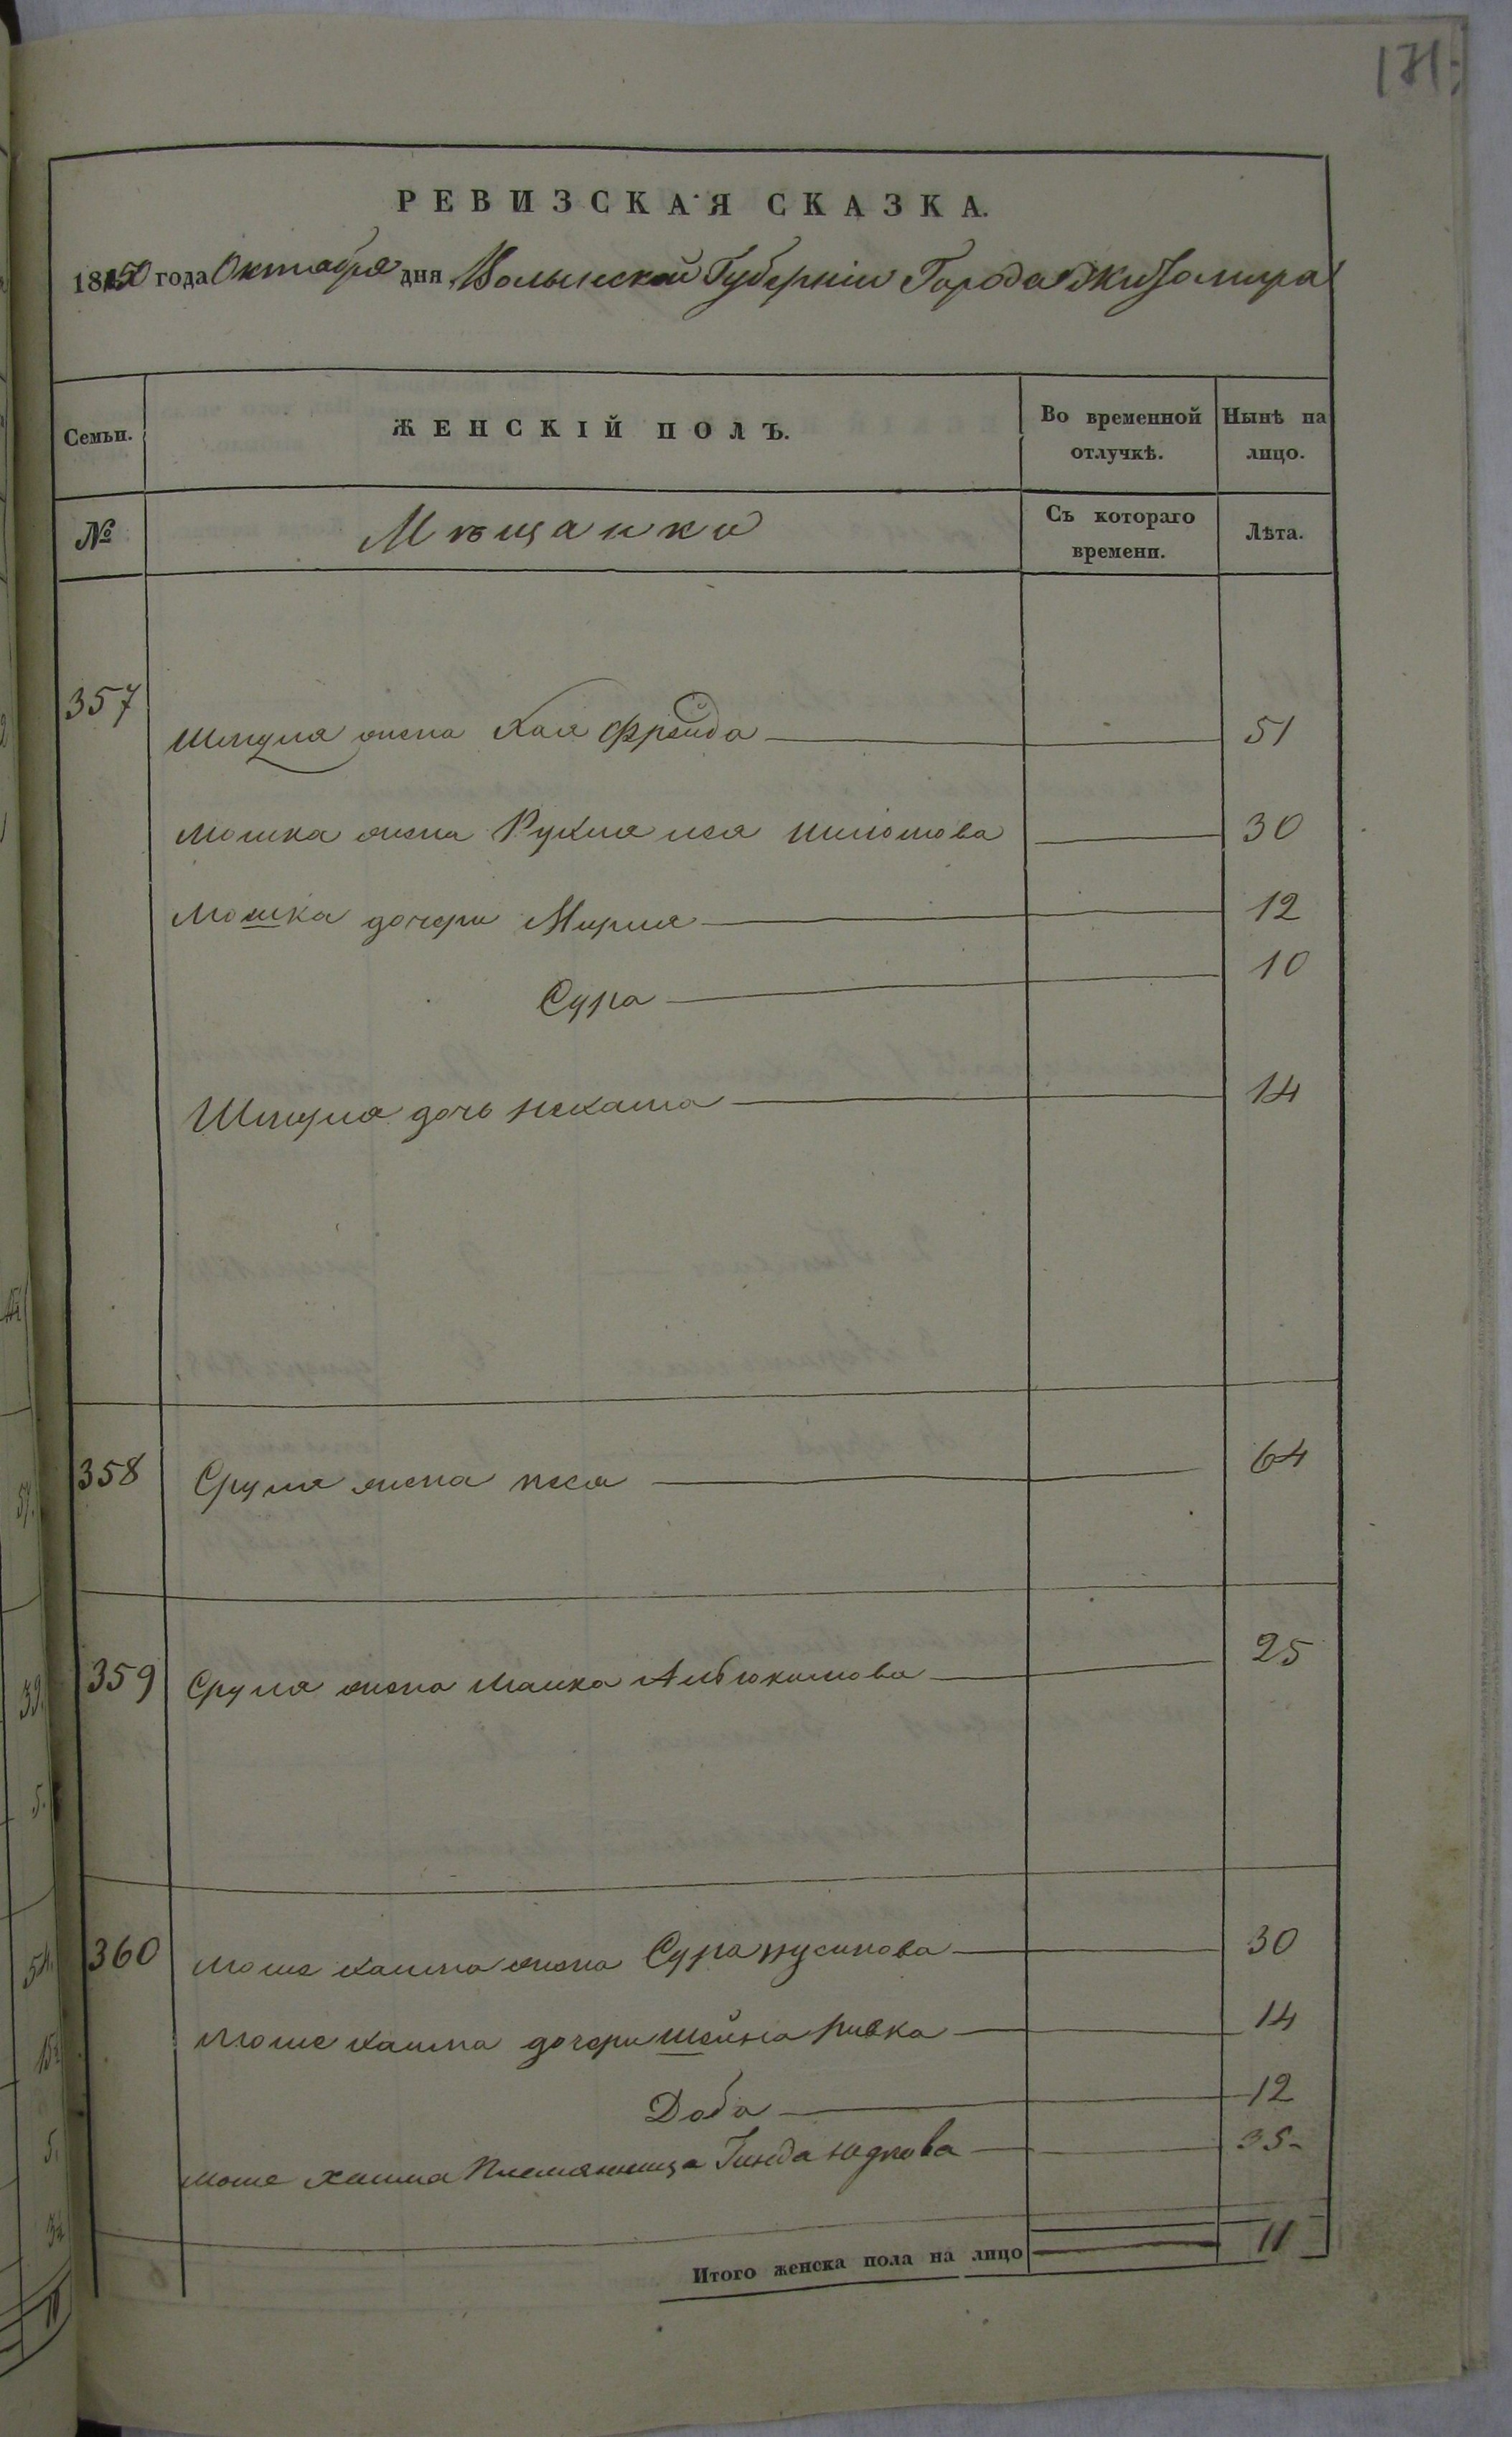 171.
РЕВИЗСКАЯ СКАЗКА.
1850 года Октября дня Волынской Губерніи Города Житомира
Семьи. ЖЕНСКІЙ ПОЛЪ. Во временной отлучкѣ. Нынѣ на лицо.
№ Мѣщанки Съ котораго времени. Лѣта.
357
Шмуля жена Хая Фрейда 51
Мошка жена Рухля лея 30
Мошка дочери Мирля 12
Сура 10
Шмуля дочь Нехама 14
358 Сруля жена песя 64
359 Сруля жена Малка 25
360 Моше хаима жена Сура 30
Моше хаима дочери шейна ривка 14
Доба 12
Моше хаима племянница Гинда Юдкова 35
Итого женска пола на лицо 11